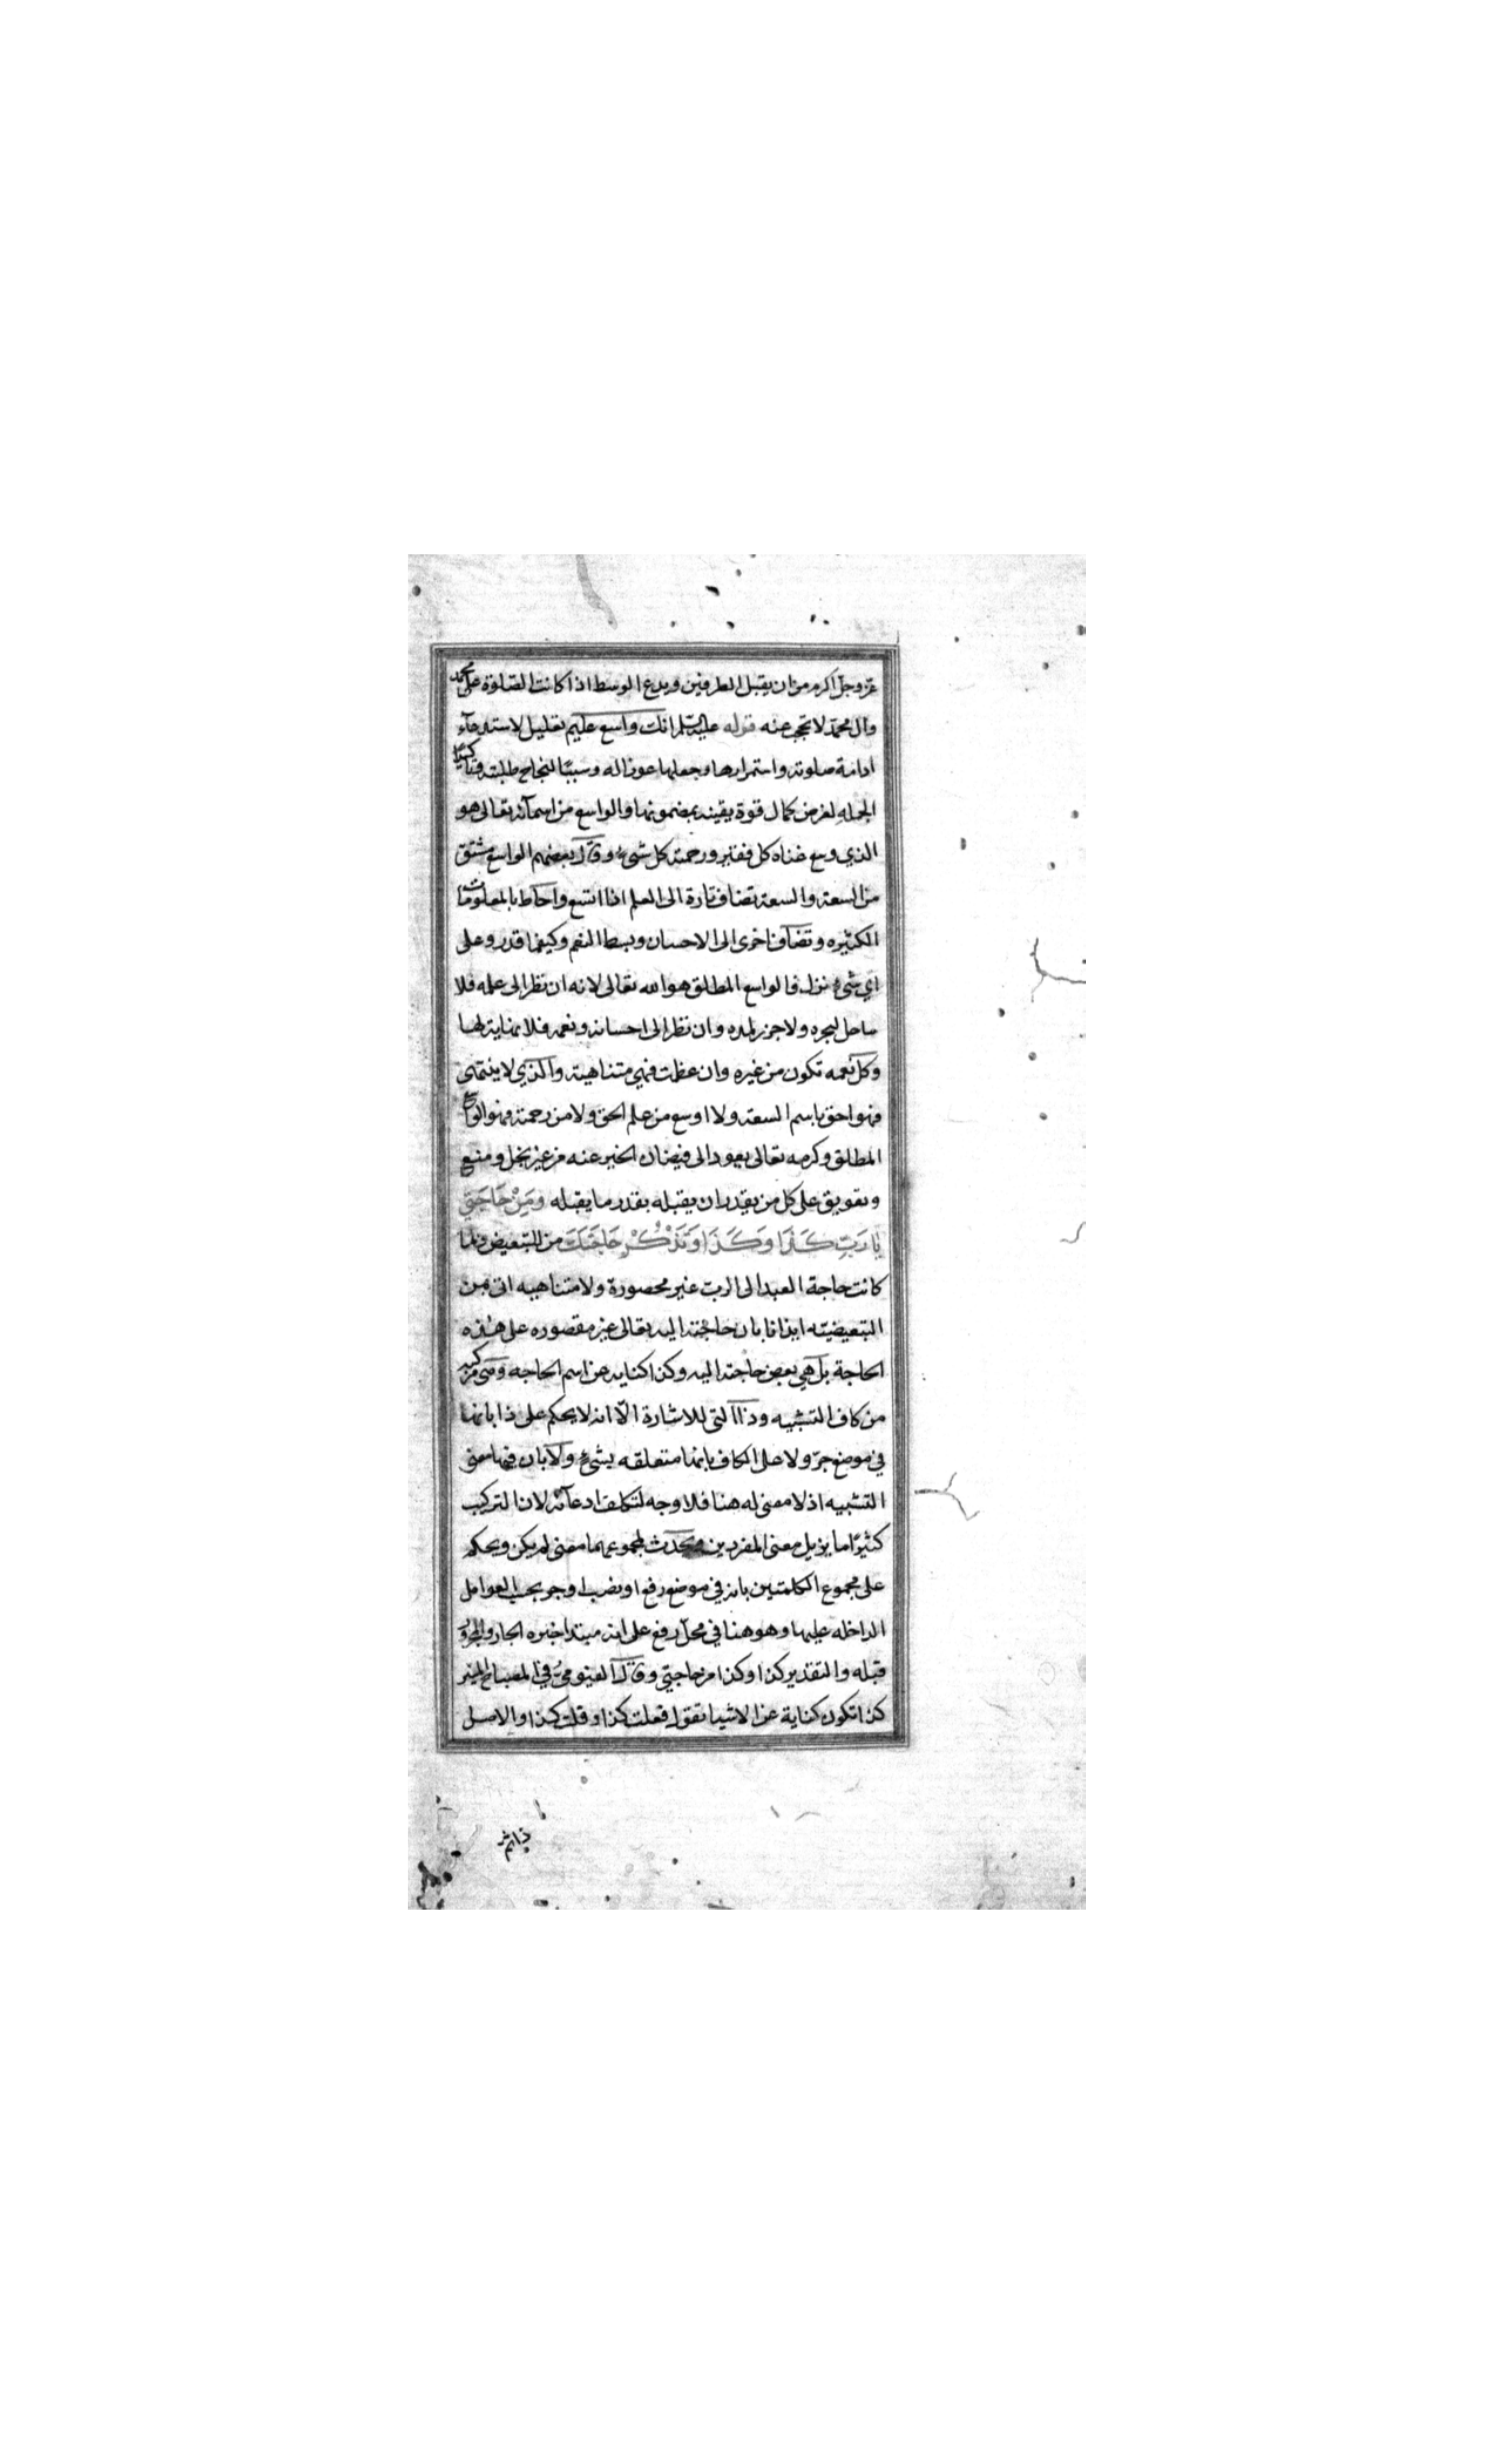 عزوجل اكرم من ان يقبل الطرفين ويدع الوسط اذا كانت الصلوة على محمد
وال محمد لا تحجب عنه قوله عليه السلم انك واسع عليم تعليل لاستدعآء
ادامة صلوته واستمرارها وجعلها عونا له وسببًا لنجاح طلبته وتاكيد
الجمله لغرض كمال قوة يقينه بمضمونها والواسع من اسمآئه تعالى هو
الذي وسع غناه كل فقير ورحمته كل شيء وقال بعضهم الواسع مشتق
من السعة والسعة تضاف تارة الى العلم اذا اتسع واحاط بالمعلومات
الكثيره وتضاف اخرى الى الاحسان وبسط النعم وكيفما قدر وعلى
اي شيء نزل فالواسع المطلق هو الله تعالى لانه ان نظر الى علمه فلا
ساحل لبحره ولا جزر لمده وان نظر الى احسانه ونعمه فلا نهاية لها
وكل نعمه تكون من غيره وان عظمت فهي متناهية والذي لا ينتهي
فهو احق باسم السعة ولا اوسع من علم الحق ولا من رحمته فهو الواسع
المطلق وكرمه تعالى يعود الى فيضان الخير عنه من غير بخل ومنع
وتعويق على كل من يقدر ان يقبله بقدر ما يقبله وَمِنْ حَاجَتِي
يَا رَبِّ كَذَا وَكَذَا وَتَذْكُرُ حَاجَتَكَ من للتبعيض ولما
كانت حاجة العبد الى الرب غير محصورة ولا متناهيه اتى بمن
التبعيضيّه ايذانا بان حاجته اليه تعالى غير مقصوره على هذه
الحاجة بل هي بعض حاجته اليه وكذا كنايه عن اسم الحاجه وهي مركبه
من كاف التشبيه وذا التي للاشارة الّا انه لا يحكم على ذا بانها
في موضع جرّ ولا على الكاف بانها متعلقه بشيء ولا بان فيها معنى
التشبيه اذ لا معنى له هنا فلا وجه لتكلف ادعآئه لان التركيب
كثيرًا ما يزيل معنى المفردين ويحدث لمجموعهما معنى لم يكن ويحكم
على مجموع الكلمتين بانه في موضع رفع او نصب او جر بحسب العوامل
الداخله عليها وهو هنا في محل رفع على انه مبتدا خبره الجار والمجرور
قبله والتقدير كذا وكذا من حاجتي وقال الفيومي في المصباح المنير
كذا تكون كناية عن الاشيا تقول فعلت كذا وقلت كذا والاصل
ذا ثم